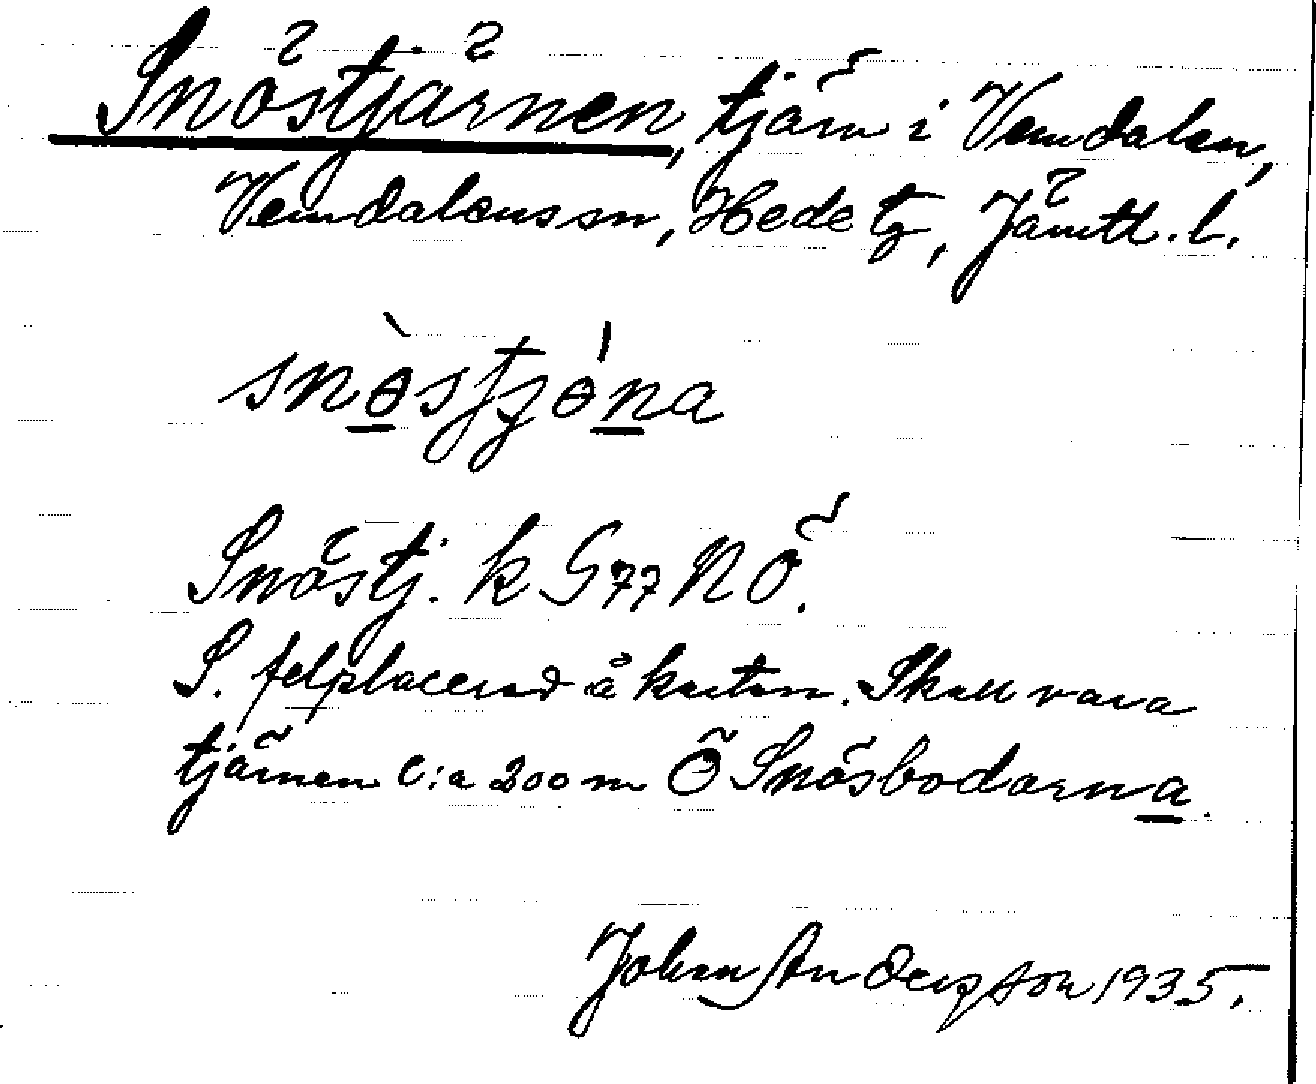 Snöstjärnen, tjärn i Vemdalen,
Vemdalens sn, Hede tg, Jämtl. l.
snòstjǿna
Snöstj. k G77 NÖ.
S. felplacerad å kartan. Skall vara
tjärnen c:a 200 m Ö Snösbodarna.
Johan Anderzson 1935.